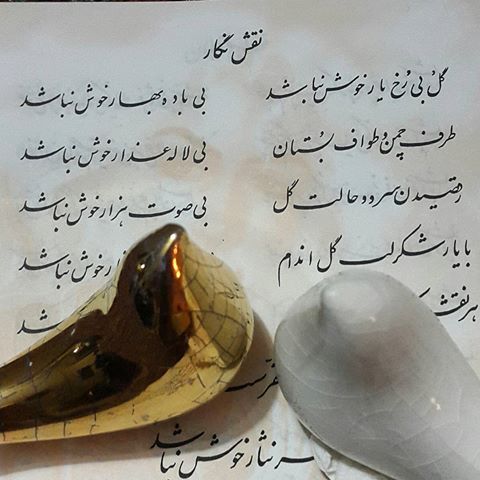 نقش نگار
گل بی رُخ یار خوش نباشد بی باده بهار خوش نباشد
طرف چمن و طواف بُستان بی لاله عذار خوش نباشد
رقصیدن سرو و حالت گل بی صوت هزار خوش نباشد
با یار شکرلب گل اندام خوش نباشد
هر نقش شد
خوش نباشد